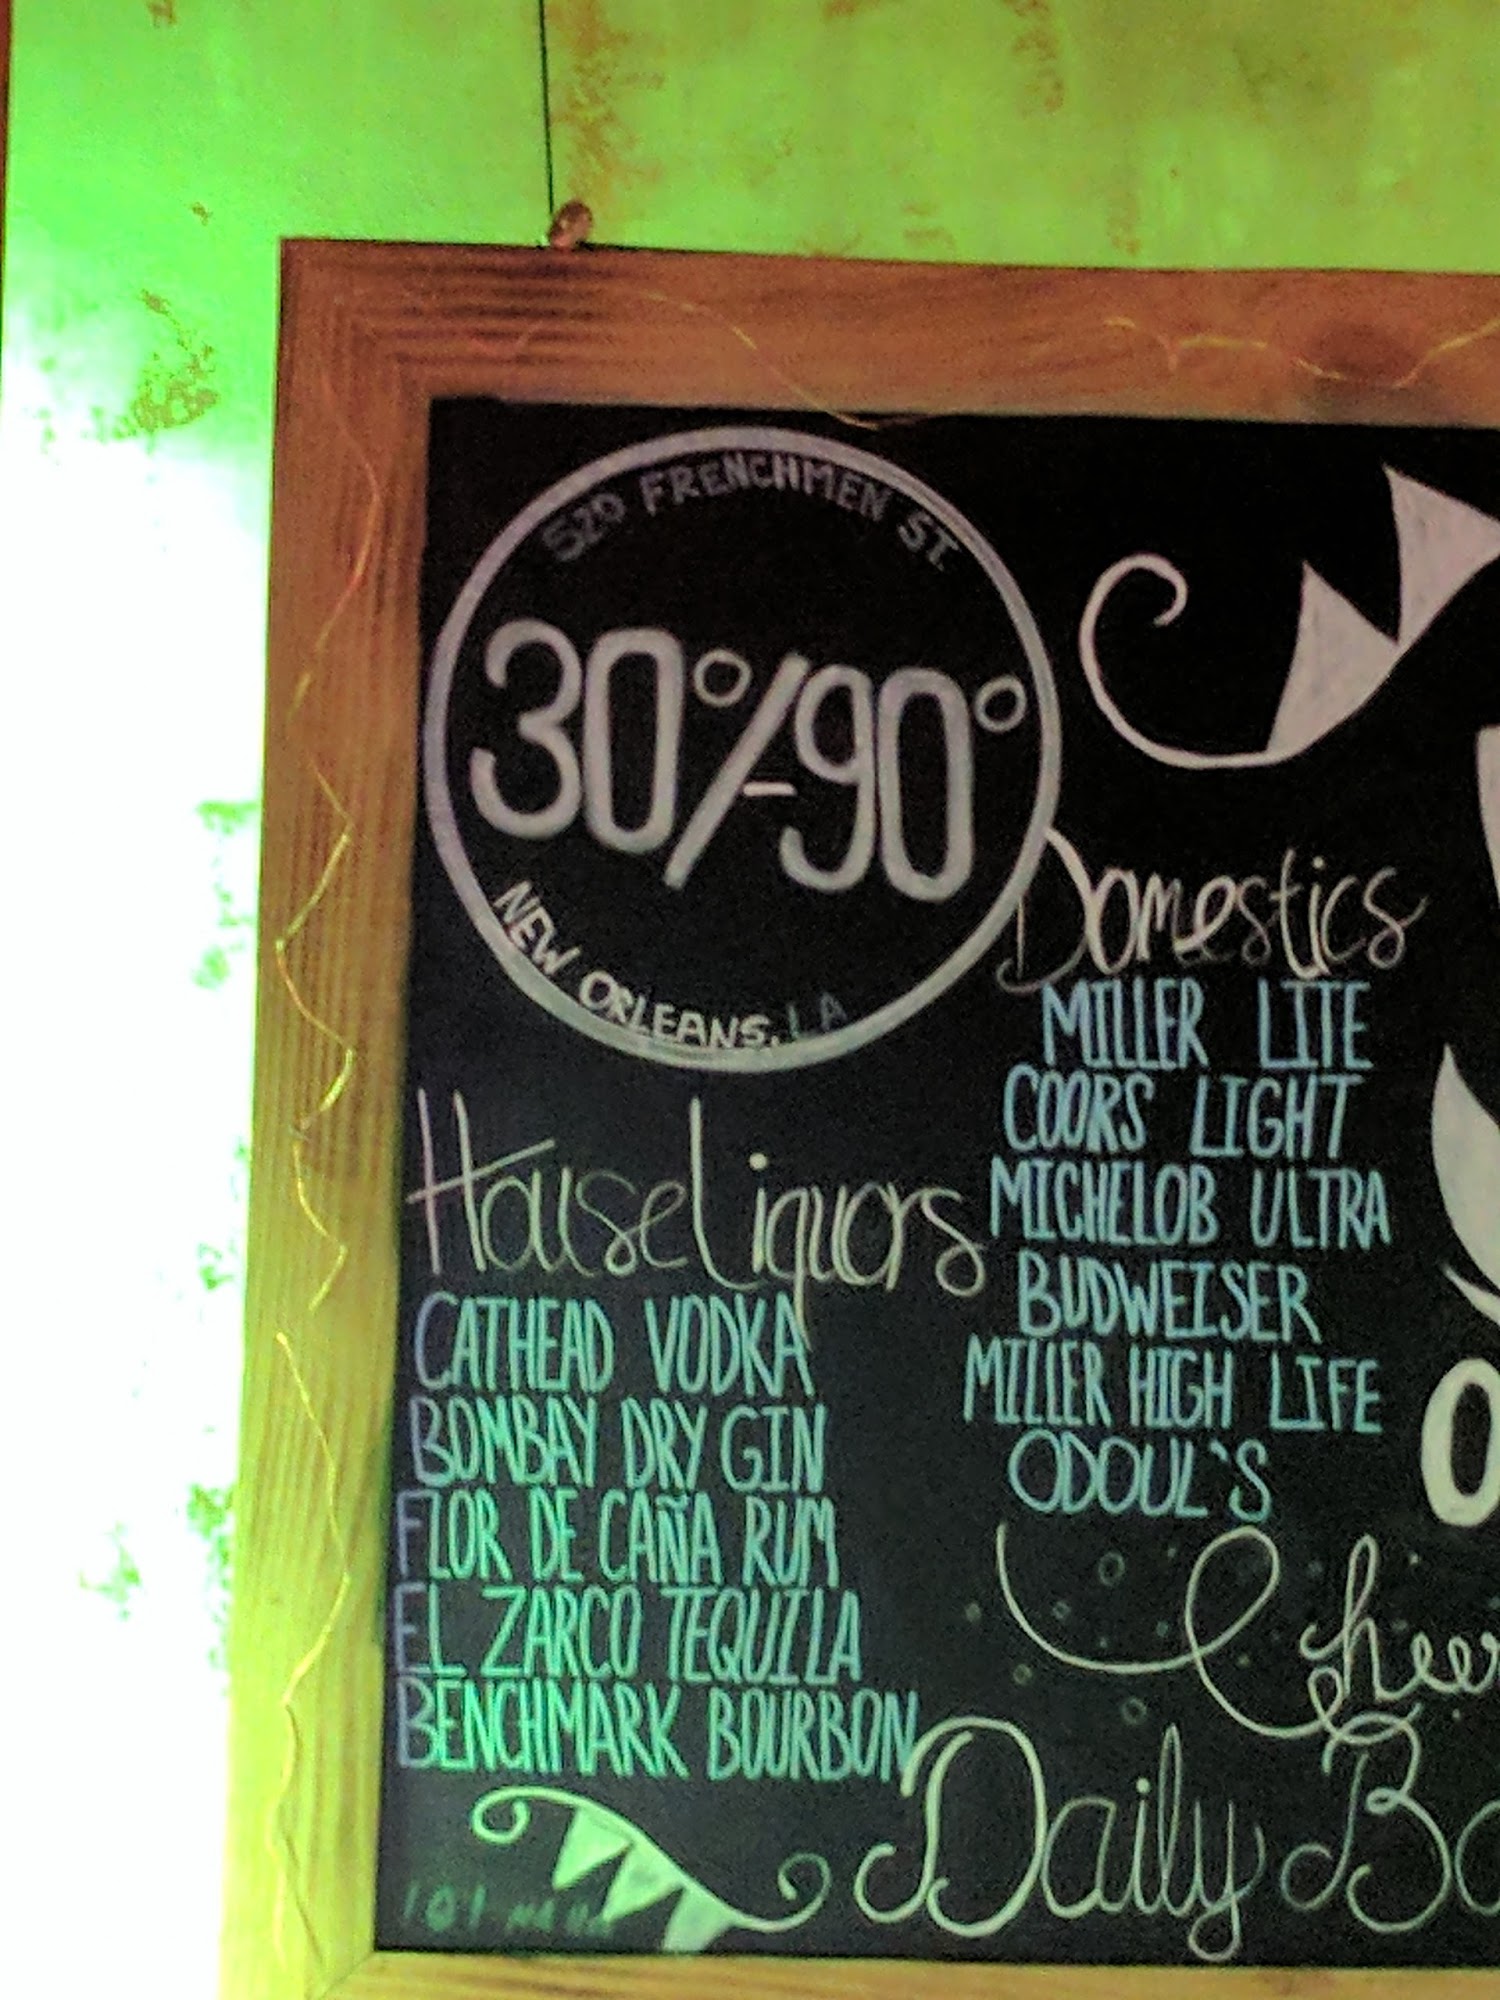 520 FRENCHMEN ST.
30°/-90°
NEW ORLEANS, LA
House Liquors
CATHEAD VODKA
BOMBAY DRY GIN
FLOR DE CAÑA RUM
EL ZARCO TEQUILA
BENCHMARK BOURBON
Domestics
MILLER LITE
COORS LIGHT
MICHELOB ULTRA
BUDWEISER
MILLER HIGH LIFE
ODOUL`S
Daily